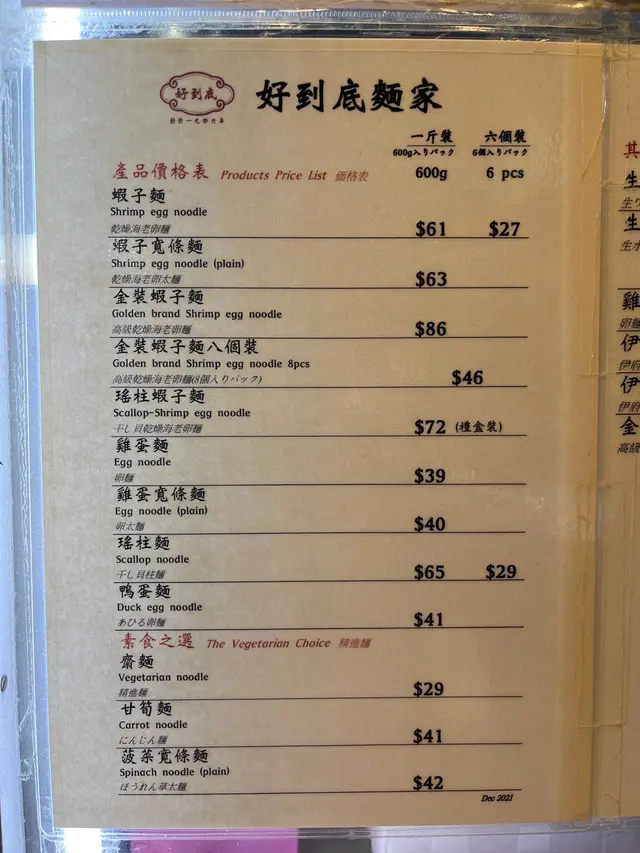 好到底
好到底麵家
一斤裝 六個裝
600g入りパック 6個入りパック
產品價格表 Products Price List 価格表 600g 6 pcs
蝦子麵
Shrimp egg noodle
乾燥海老卵麺 $61 $27
蝦子寬條麵
Shrimp egg noodle (plain)
乾燥海老卵太麺 $63
金裝蝦子麵
Golden brand Shrimp egg noodle
高級乾燥海老卵麺 $86
金裝蝦子麵八個裝
Golden brand Shrimp egg noodle 8pcs
高級乾燥海老卵麺(8個入りパック) $46
瑤柱蝦子麵
Scallop-Shrimp egg noodle
干し貝乾燥海老卵麺 $72 (禮盒裝)
雞蛋麵
Egg noodle
卵麺 $39
雞蛋寬條麵
Egg noodle (plain)
卵太麺 $40
瑤柱麵
Scallop noodle
干し貝柱麺 $65 $29
鴨蛋麵
Duck egg noodle
あひる卵麺 $41
素食之選 The Vegetarian Choice 精進麺
齋麵
Vegetarian noodle
精進麺 $29
甘筍麵
Carrot noodle
にんじん麺 $41
菠菜寬條麵
Spinach noodle (plain)
ほうれん草太麺 $42
Dec 2021
其
生
生
生
雞
卵麺
伊
伊府
伊
伊府
金
高級